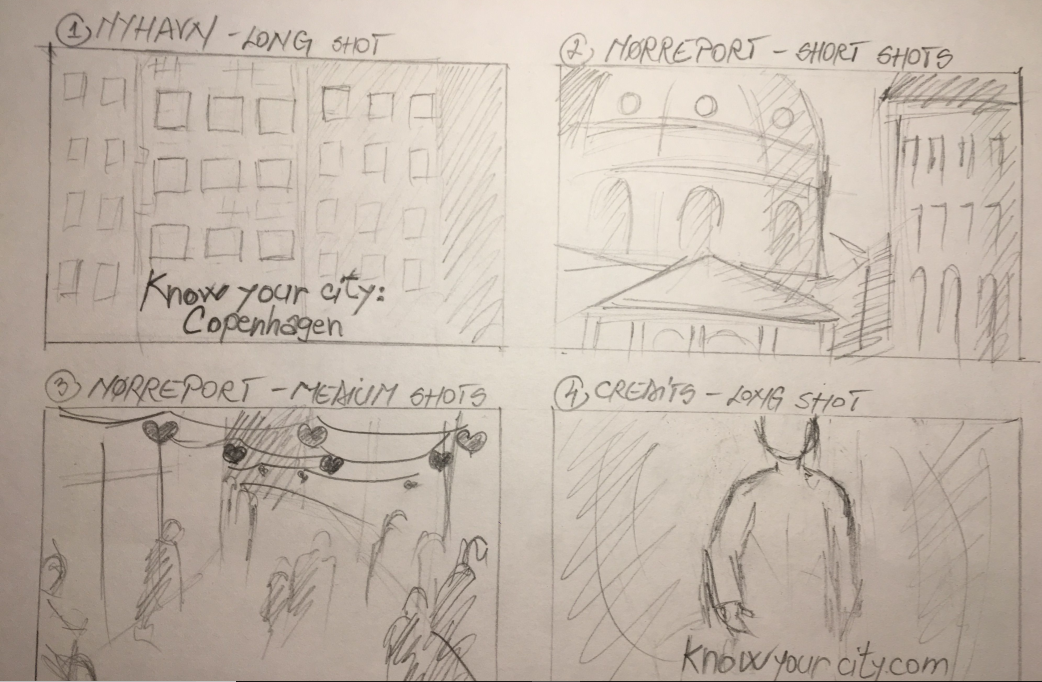 ① NYHAVN - LONG SHOT
Know your city:
Copenhagen
② NØRREPORT - SHORT SHOTS
③ NØRREPORT - MEDIUM SHOTS
④ CREDITS - LONG SHOT
Knowyourcity.com